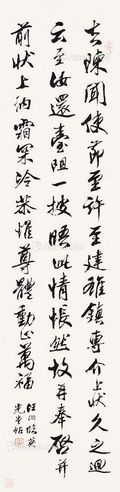 去陳聞使節至許至建雄鎮專介上狀久之迴
云至汝還臺阻一披晤此情悵然故再奉啓并
前狀上納霜寒冷恭惟尊體動止萬福